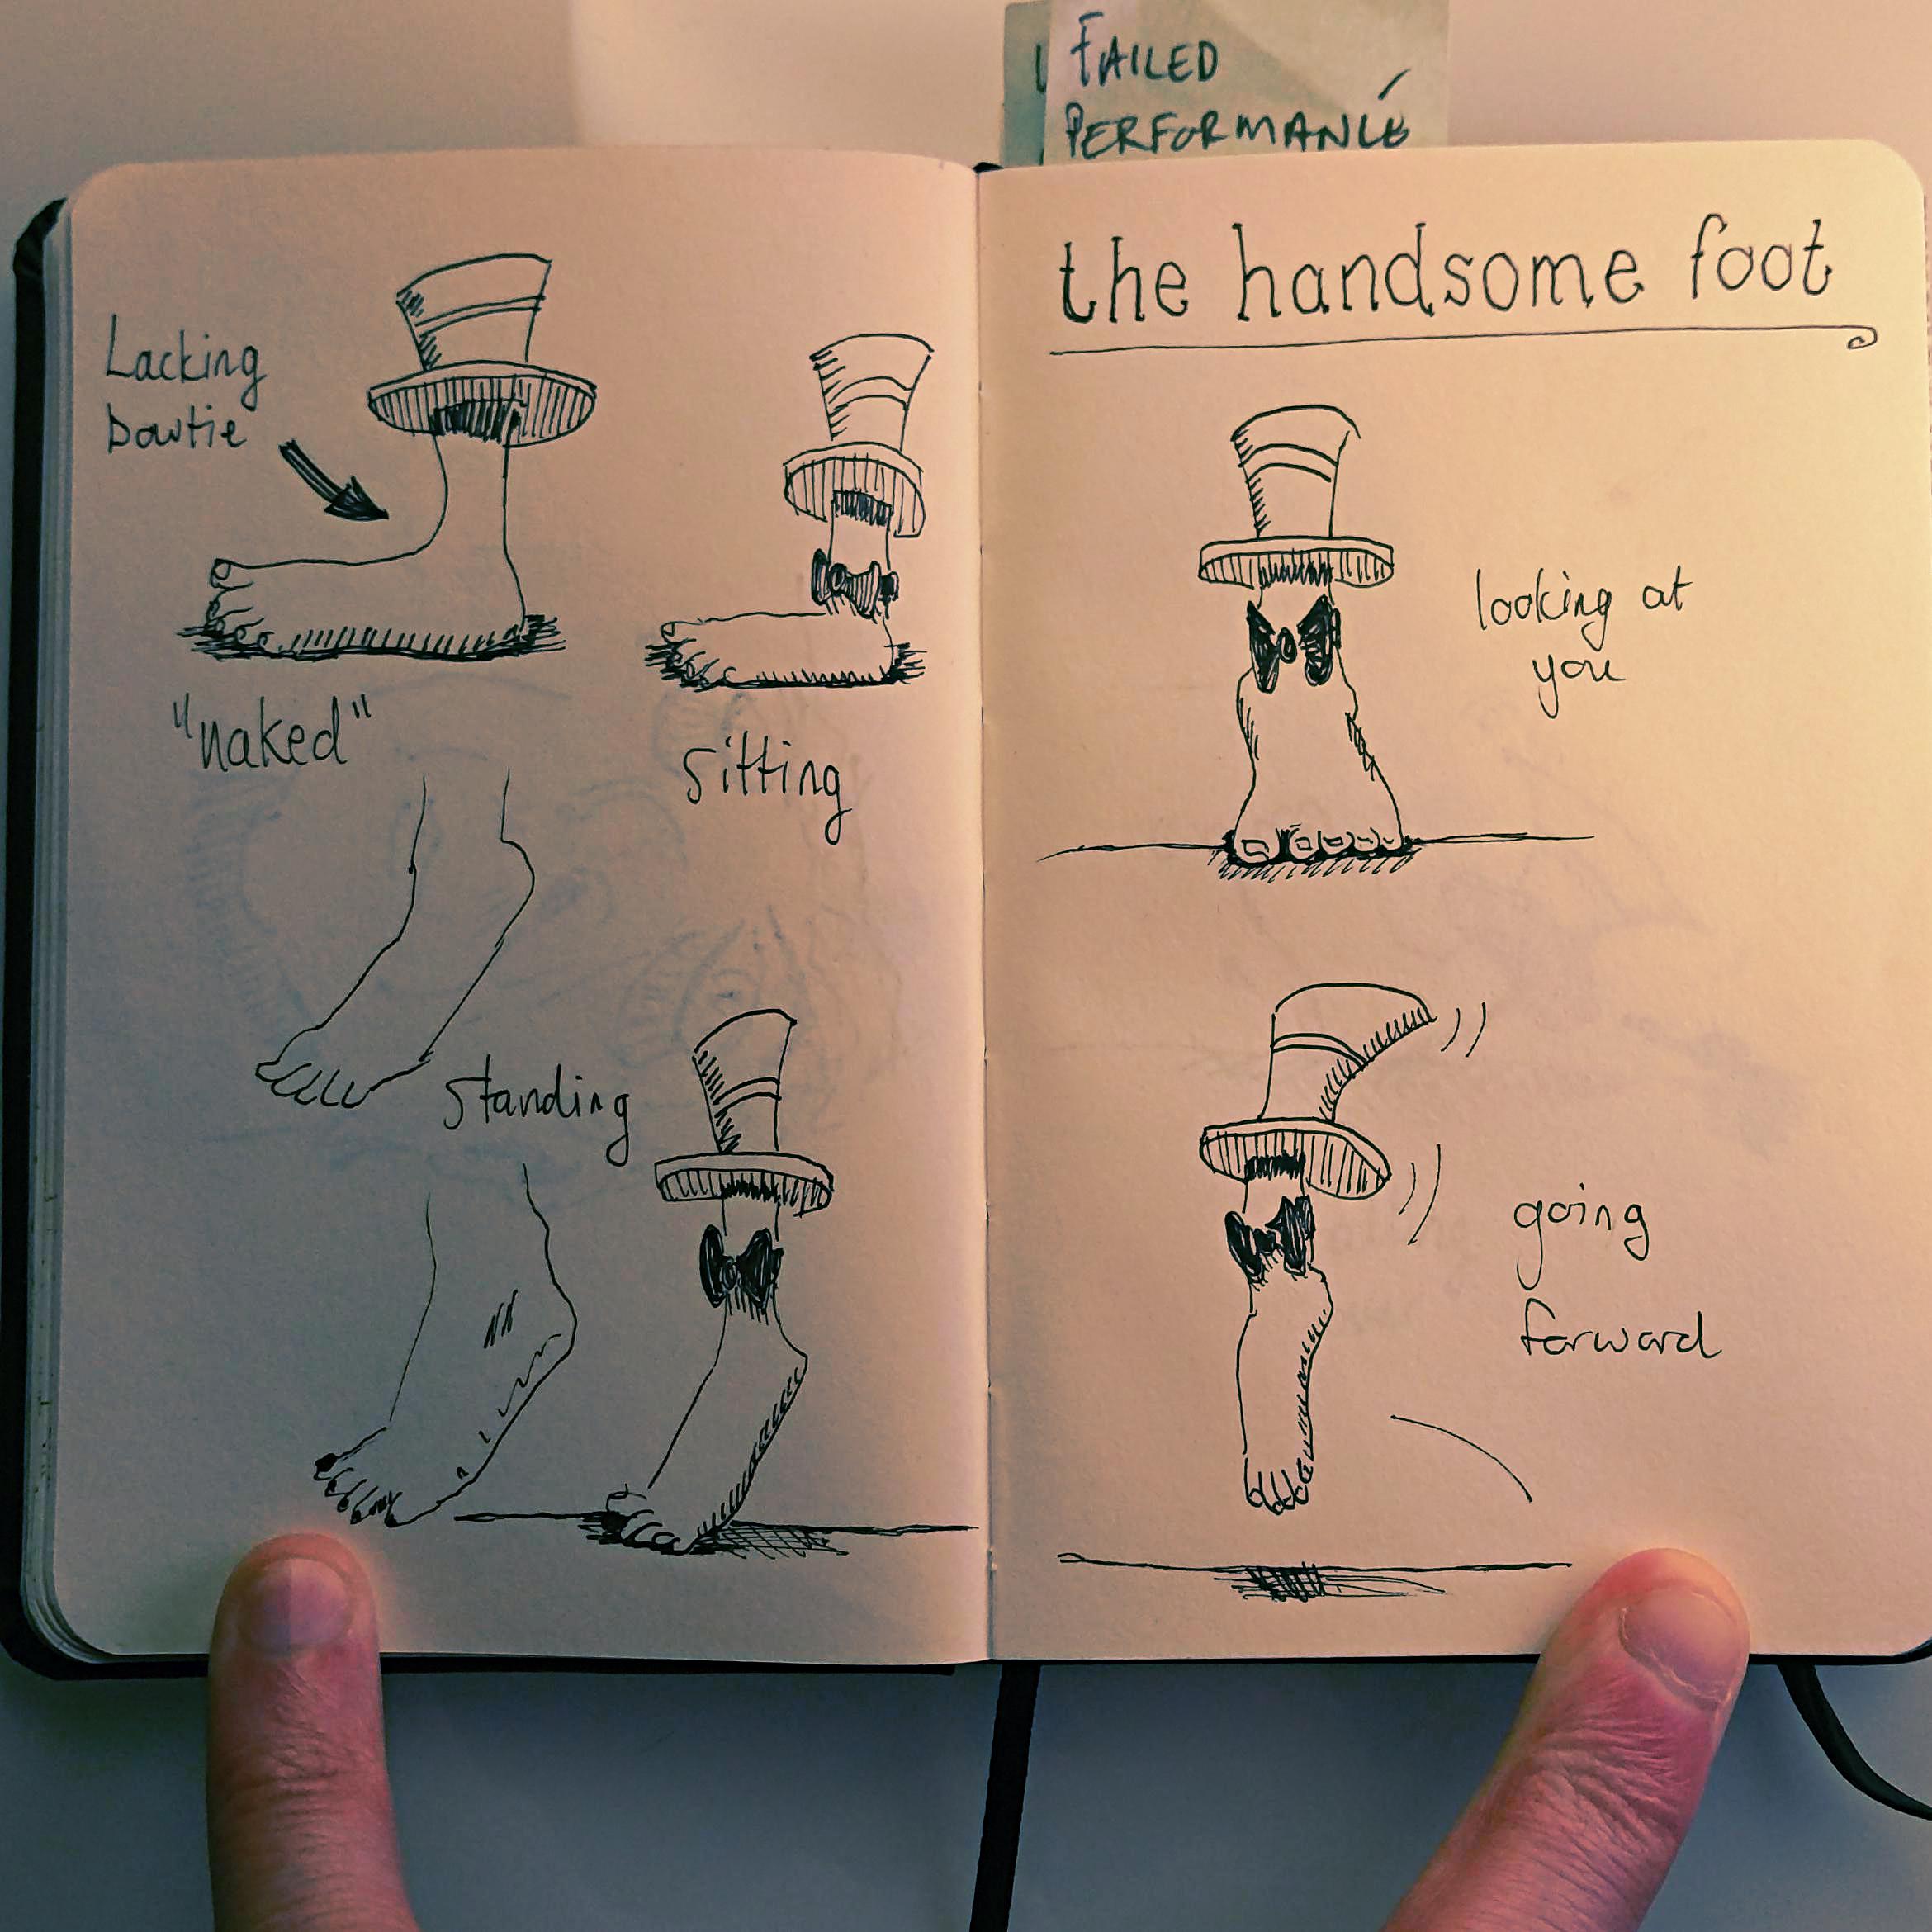 FAILED
PERFORMANCE
Lacking
bowtie
"naked"
sitting
standing
the handsome foot
looking at
you
going
forward